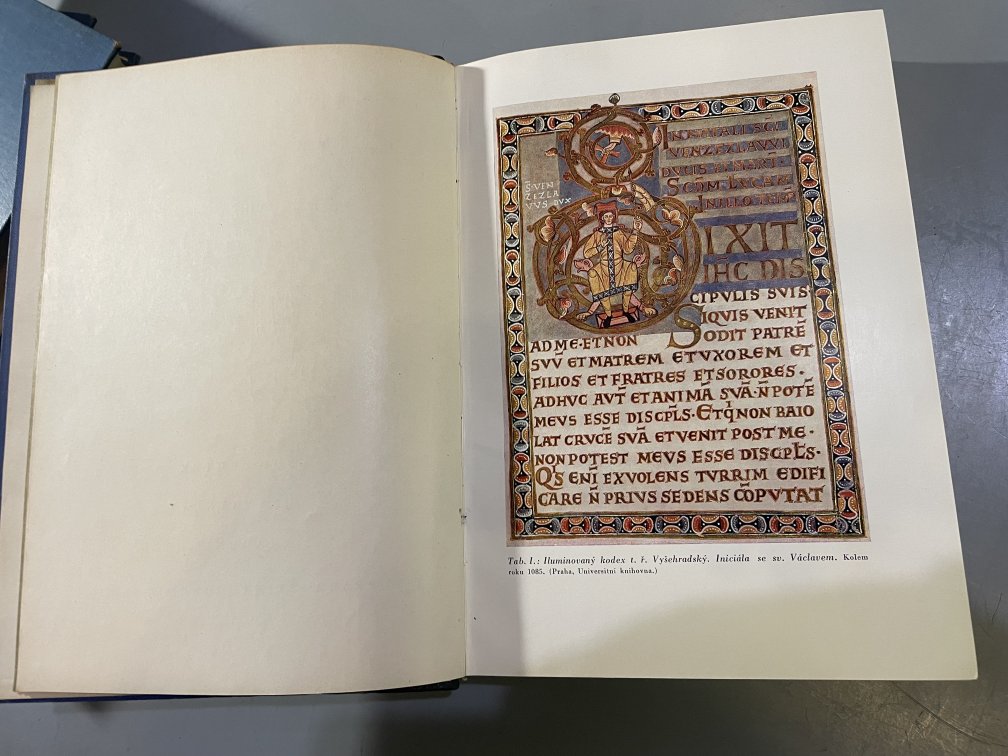 IN NATALI SC̄I
VENZEZLAVVI
DVCIS
SCDM LVCAM
IN ILLO TEMP̄
S̄ VEN
ZEZLA
VVS DVX
DIXIT
IH̄C DIS
CIPVLIS SVIS
SIQVIS VENIT
AD ME·ET NON
SODIT PATRĒ
SVV̄ ET MATREM ET VXOREM ET
FILIOS ET FRATRES ET SORORES·
ADHVC AVT̄ ET ANIMĀ SVĀ·N̄ POTĒ
MEVS ESSE DISCPL̄S·ET Q̄ NON BAIO
LAT CRVCĒ SVĀ ET VENIT POST ME·
NON POTEST MEVS ESSE DISCPL̄S·
Q̇S ENĪ EX VOLENS TVRRIM EDIFI
CARE N̄ PRIVS SEDENS CŌPVTAT
Tab. I.: Iluminovaný kodex t. ř. Vyšehradský. Iniciála se sv. Václavem. Kolem
roku 1085. (Praha, Universitní knihovna.)